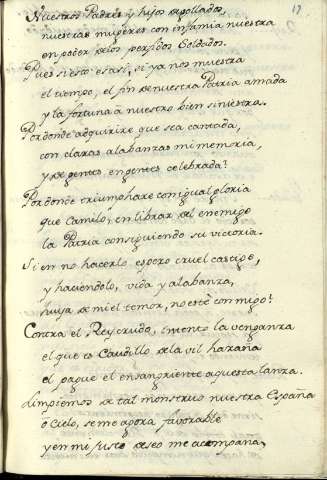 17
Nuestros Padres y hijos degollados,
nuestras mugeres con infamia nuestra
en poder de los perfidos Soldados.
Pues si esto es asi, si ya nos muestra
el tiempo, el fin de nuestra Patria amada
y la fortuna à nuestro bien siniestra.
Por donde adquirire que sea cantada,
con claras alabanzas mi memoria,
y de gentes en gentes celebrada?
Por donde triumphare con igual gloria
que Camilo, en librar del enemigo
la Patria consiguiendo su victoria.
Si en no hacerlo espero cruel castigo,
y haciendolo, vida y alabanza,
huya de mi el temor, no estè conmigo?
Contra el Rey crudo, intento la venganza
el que es Caudillo de la vil hazaña
el pague el ensangriente aquesta lanza.
Limpiemos de tal monstruo nuestra España
ò Cielo, seme agora favorable
y en mi justo deseo me acompaña,